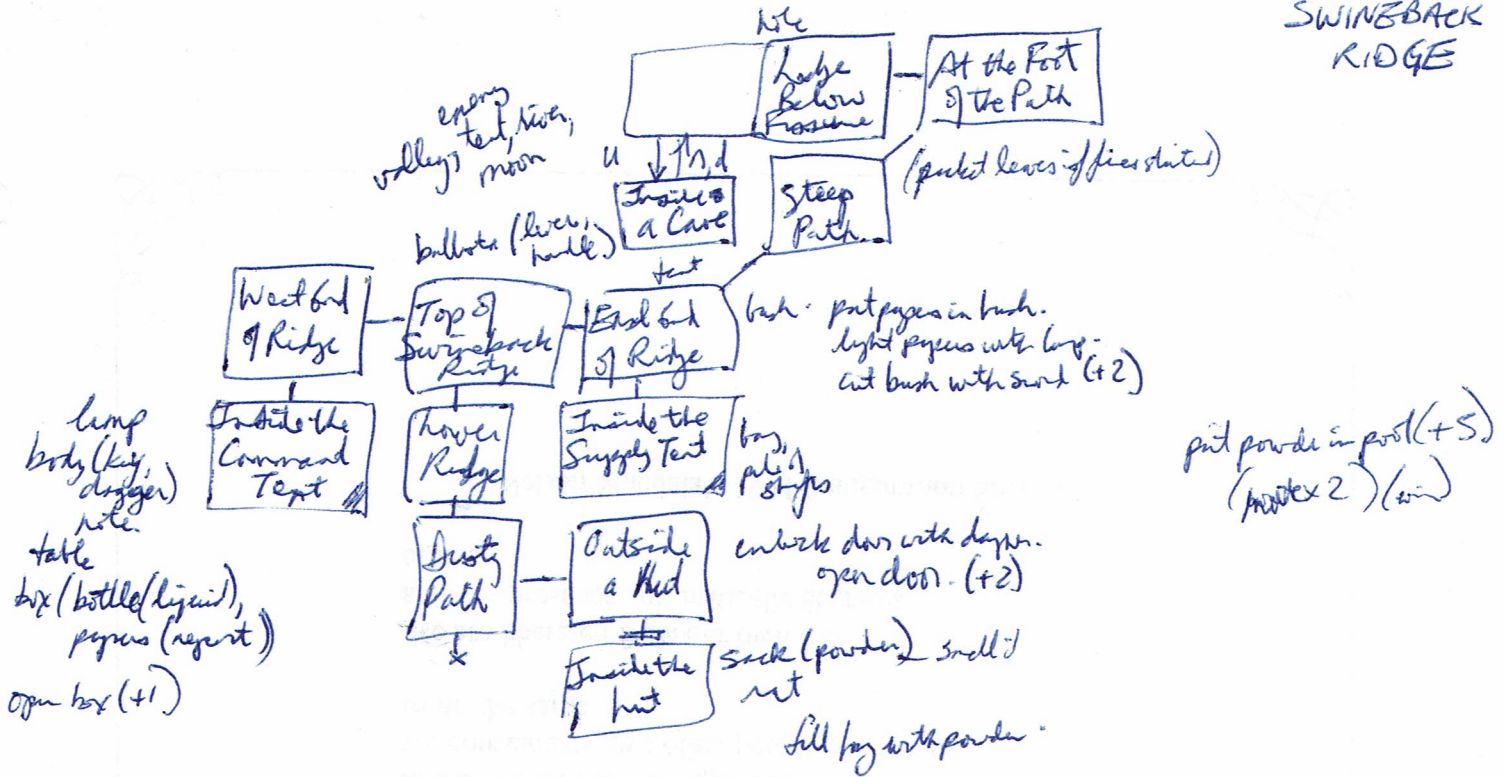 SWINEBACK
RIDGE
note
Ledge
Below
Fissure
At the Foot
of the Path
enemy
valley, tent, river,
moon
u
n, d
Inside
a Cave
Steep
Path
ballista (lever,
handle)
tent
West End
of Ridge
Top of
Swineback
Ridge
East End
of Ridge
bush. put papers in bush.
light papers with lamp.
cut bush with sword (+2)
lamp
body (key,
dagger)
note.
table
box (bottle (liquid),
papers (report))
open box (+1)
Inside the
Command
Tent
Lower
Ridge
Inside the
Supply Tent
bag,
pile of
put powder in pool (+5)
(win)
Dusty
Path
x
Outside
a Hut
unlock door with dagger.
open door. (+2)
Inside the
hut
sack (powder) - smell it
rat
fill bag with powder.